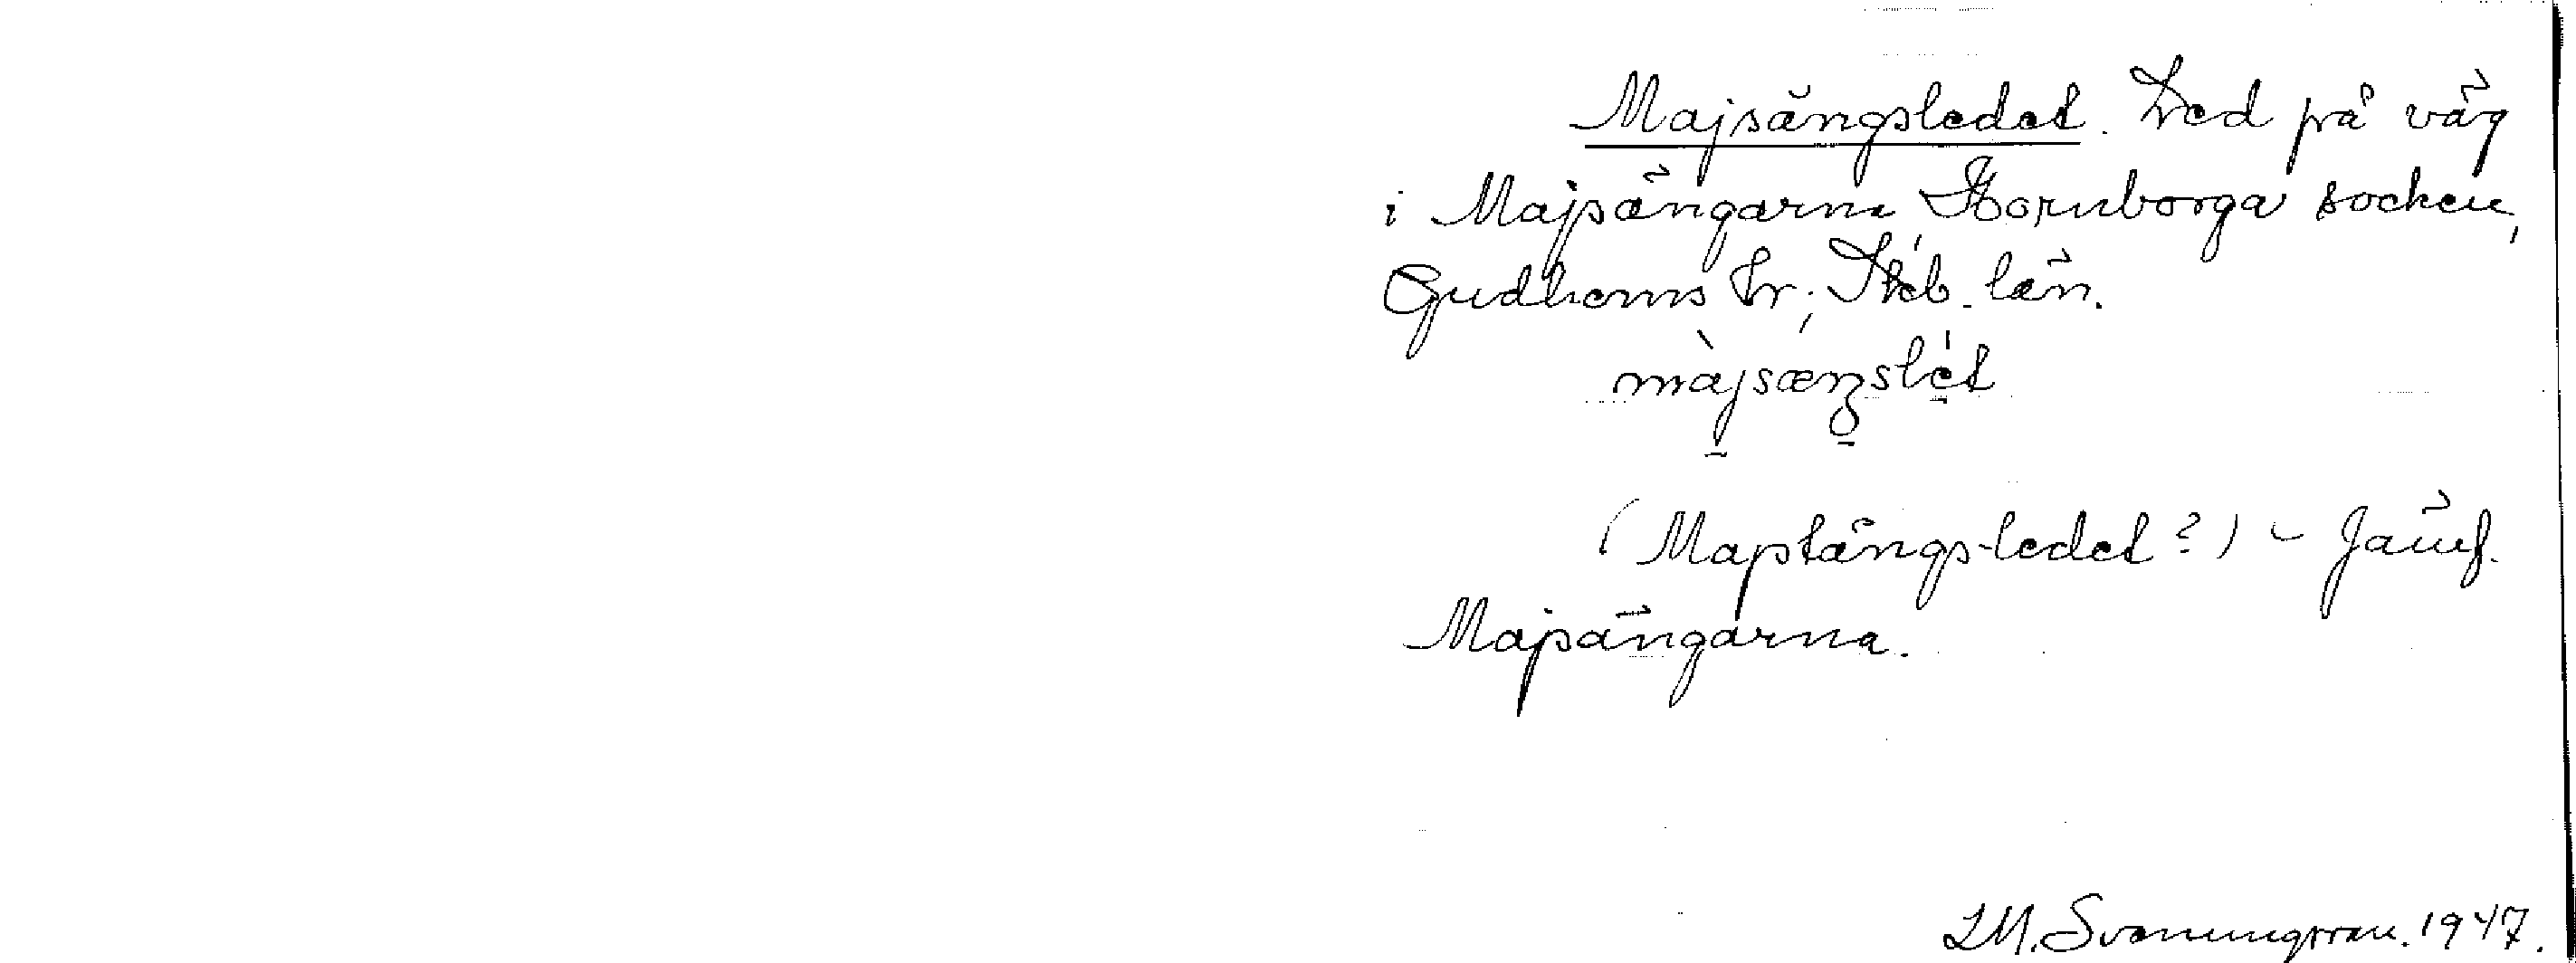 Majsängsledet. Led på väg
i Majsängarna, Hornborga socken,
Gudhems hr; Skb. län.
màjsæŋslét
(Majstångs-ledet?) - Jämf.
Majsängarna.
LM. Svenungsson. 1947.